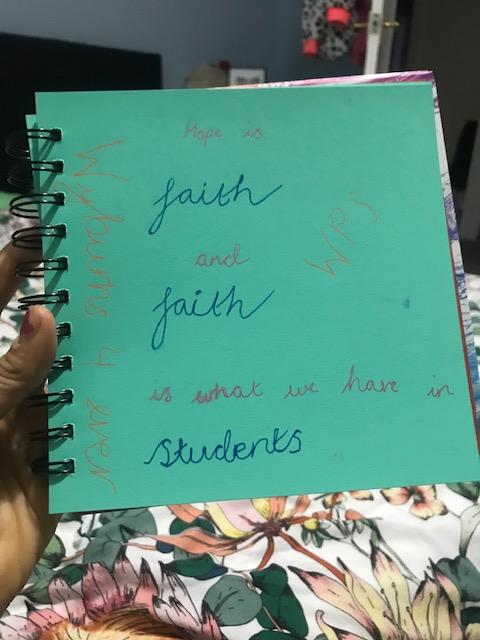 Hope is
faith
and
faith
is what we have in
students
Wyburns 4 ever
WPS